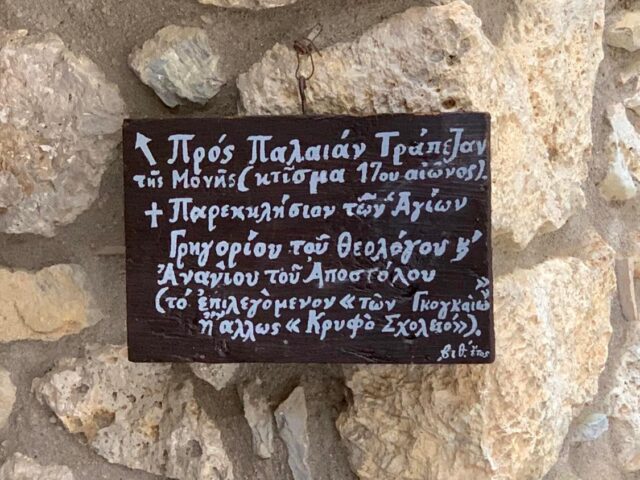 Πρός Παλαιάν Τράπεζαν
τῆς Μονῆς (κτῖσμα 17ου αἰῶνος).
Παρεκκλήσιον τῶν Ἁγίων
Γρηγορίου τοῦ Θεολόγου κ´
Ἀνανίου τοῦ Ἀποστόλου
(τό ἐπιλεγόμενον «τῶν Γκογκαίων»
ἤ ἄλλως «Κρυφό Σχολειό»).